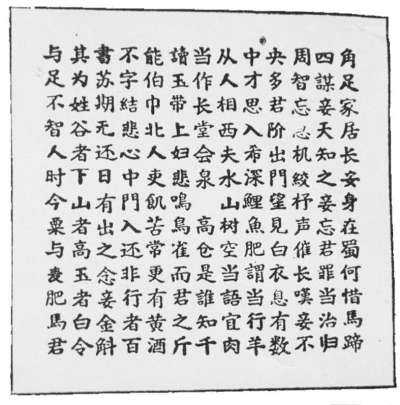 角足家居长安身在蜀何惜馬蹄
四謀妾天知之妾忘君罪当治归
周智忘忌机絞杼声催长嘆妾不
央多君阶出門望見白衣息有数
中才思入希深鯉魚肥謂当行羊
从人相西夫水山树空当語宜肉
当作长堂会泉 高仓是誰知千
讀玉带上妇悲鳴鳥雀而君之斤
能伯巾北人吏飢苦常更有黄酒
不字結悲心中門入还非行者百
書苏期无还日有出之念妾金斛
其为姓谷者下山者高玉者白令
与足不智人时今粟与麦肥馬君